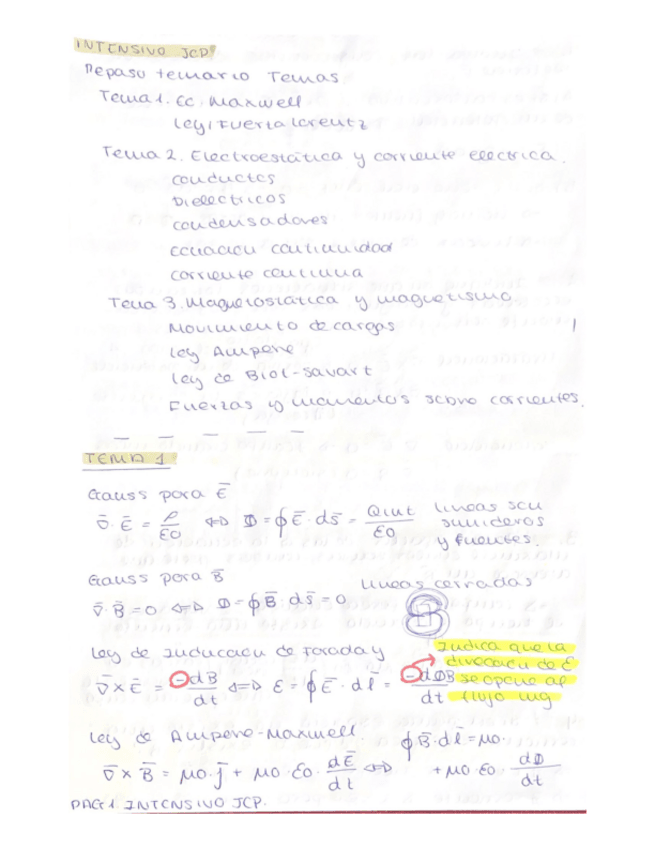 INTENSIVO JCP.
Repaso temario Temas
Tema 1. Ec Maxwell
Ley/Fuerza Lorentz
Tema 2. Electroestática y corriente eléctrica.
conductos
Dieléctricos
condensadores
ecuación continuidad
corriente continua
Tema 3. Magnetostática y magnetismo
Movimiento de cargas
ley Ampere
ley de Biot-Savart
Fuerzas y momentos sobre corrientes.
TEMA 1
Gauss para Ē
∇̄·Ē = ρ/ε0 ⇔ Φ = ∮Ē·ds̄ = Qint/ε0 líneas son sumideros y fuentes.
Gauss para B̄
líneas cerradas
∇̄·B̄ = 0 ⇔ Φ = ∮B̄·ds̄ = 0
Ley de Inducción de Faraday
∇̄×Ē = -dB/dt ⇔ ε = ∮Ē·dl̄ = -dΦB/dt
Indica que la
dirección de ε
se opone al
flujo mg
Ley de Ampere-Maxwell.
∇̄×B̄ = μ0·j̄ + μ0·ε0·dĒ/dt ⇔ ∮B̄·dl̄ = μ0· + μ0·ε0·dΦ/dt
PAG 1 INTENSIVO JCP.